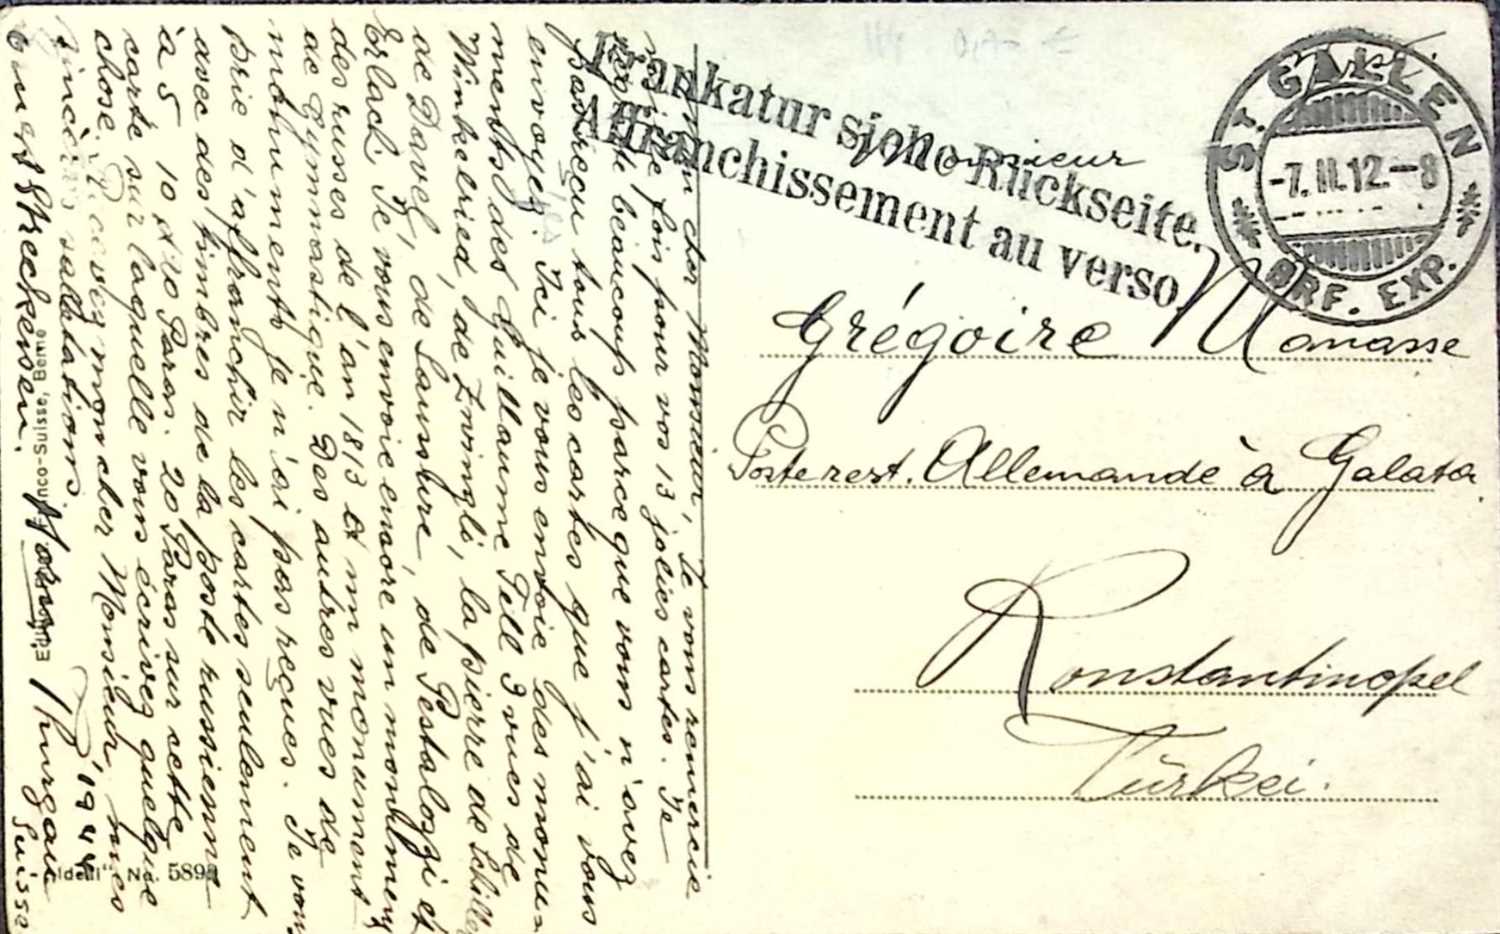 Mon cher Monsieur, Je vous remercie
fois pour vos 13 jolies cartes. Je
beaucoup parce que vous n'avez
pas reçu tous les cartes que j'ai vous
envoyez. Ici je vous envoie des monu-
ments des Guillaume Tell 9 vues de
Winkelried, de Zwingli, la pierre de Schiller
de Davel, de Saussure, de Pestalozzi et
Erlach. Je vous envoie encore un monument
des russes de l'an 1813 et un monument
de Gymnastique. Des autres vues de
monuments je n'ai pas reçues. Je vous
prie d'affranchir les cartes seulement
avec des timbres de la poste russienne
à 5 10 Paras. 20 Paras sur cette
carte sur laquelle vous écrivez quelque
chose. Recevez mon cher Monsieur mes
sincères salutations
Ernest Streckeisen. Thurgau
Suisse
Franco-Suisse, Berne
"Ideal" No. 589
Frankatur siehe Rückseite.
Affranchissement au verso
ST. GALLEN
-7.II.12.-8
BRF. EXP.
Monsieur
Grégoire Manasse
Poste rest. Allemande à Galata
Konstantinopel
Türkei.